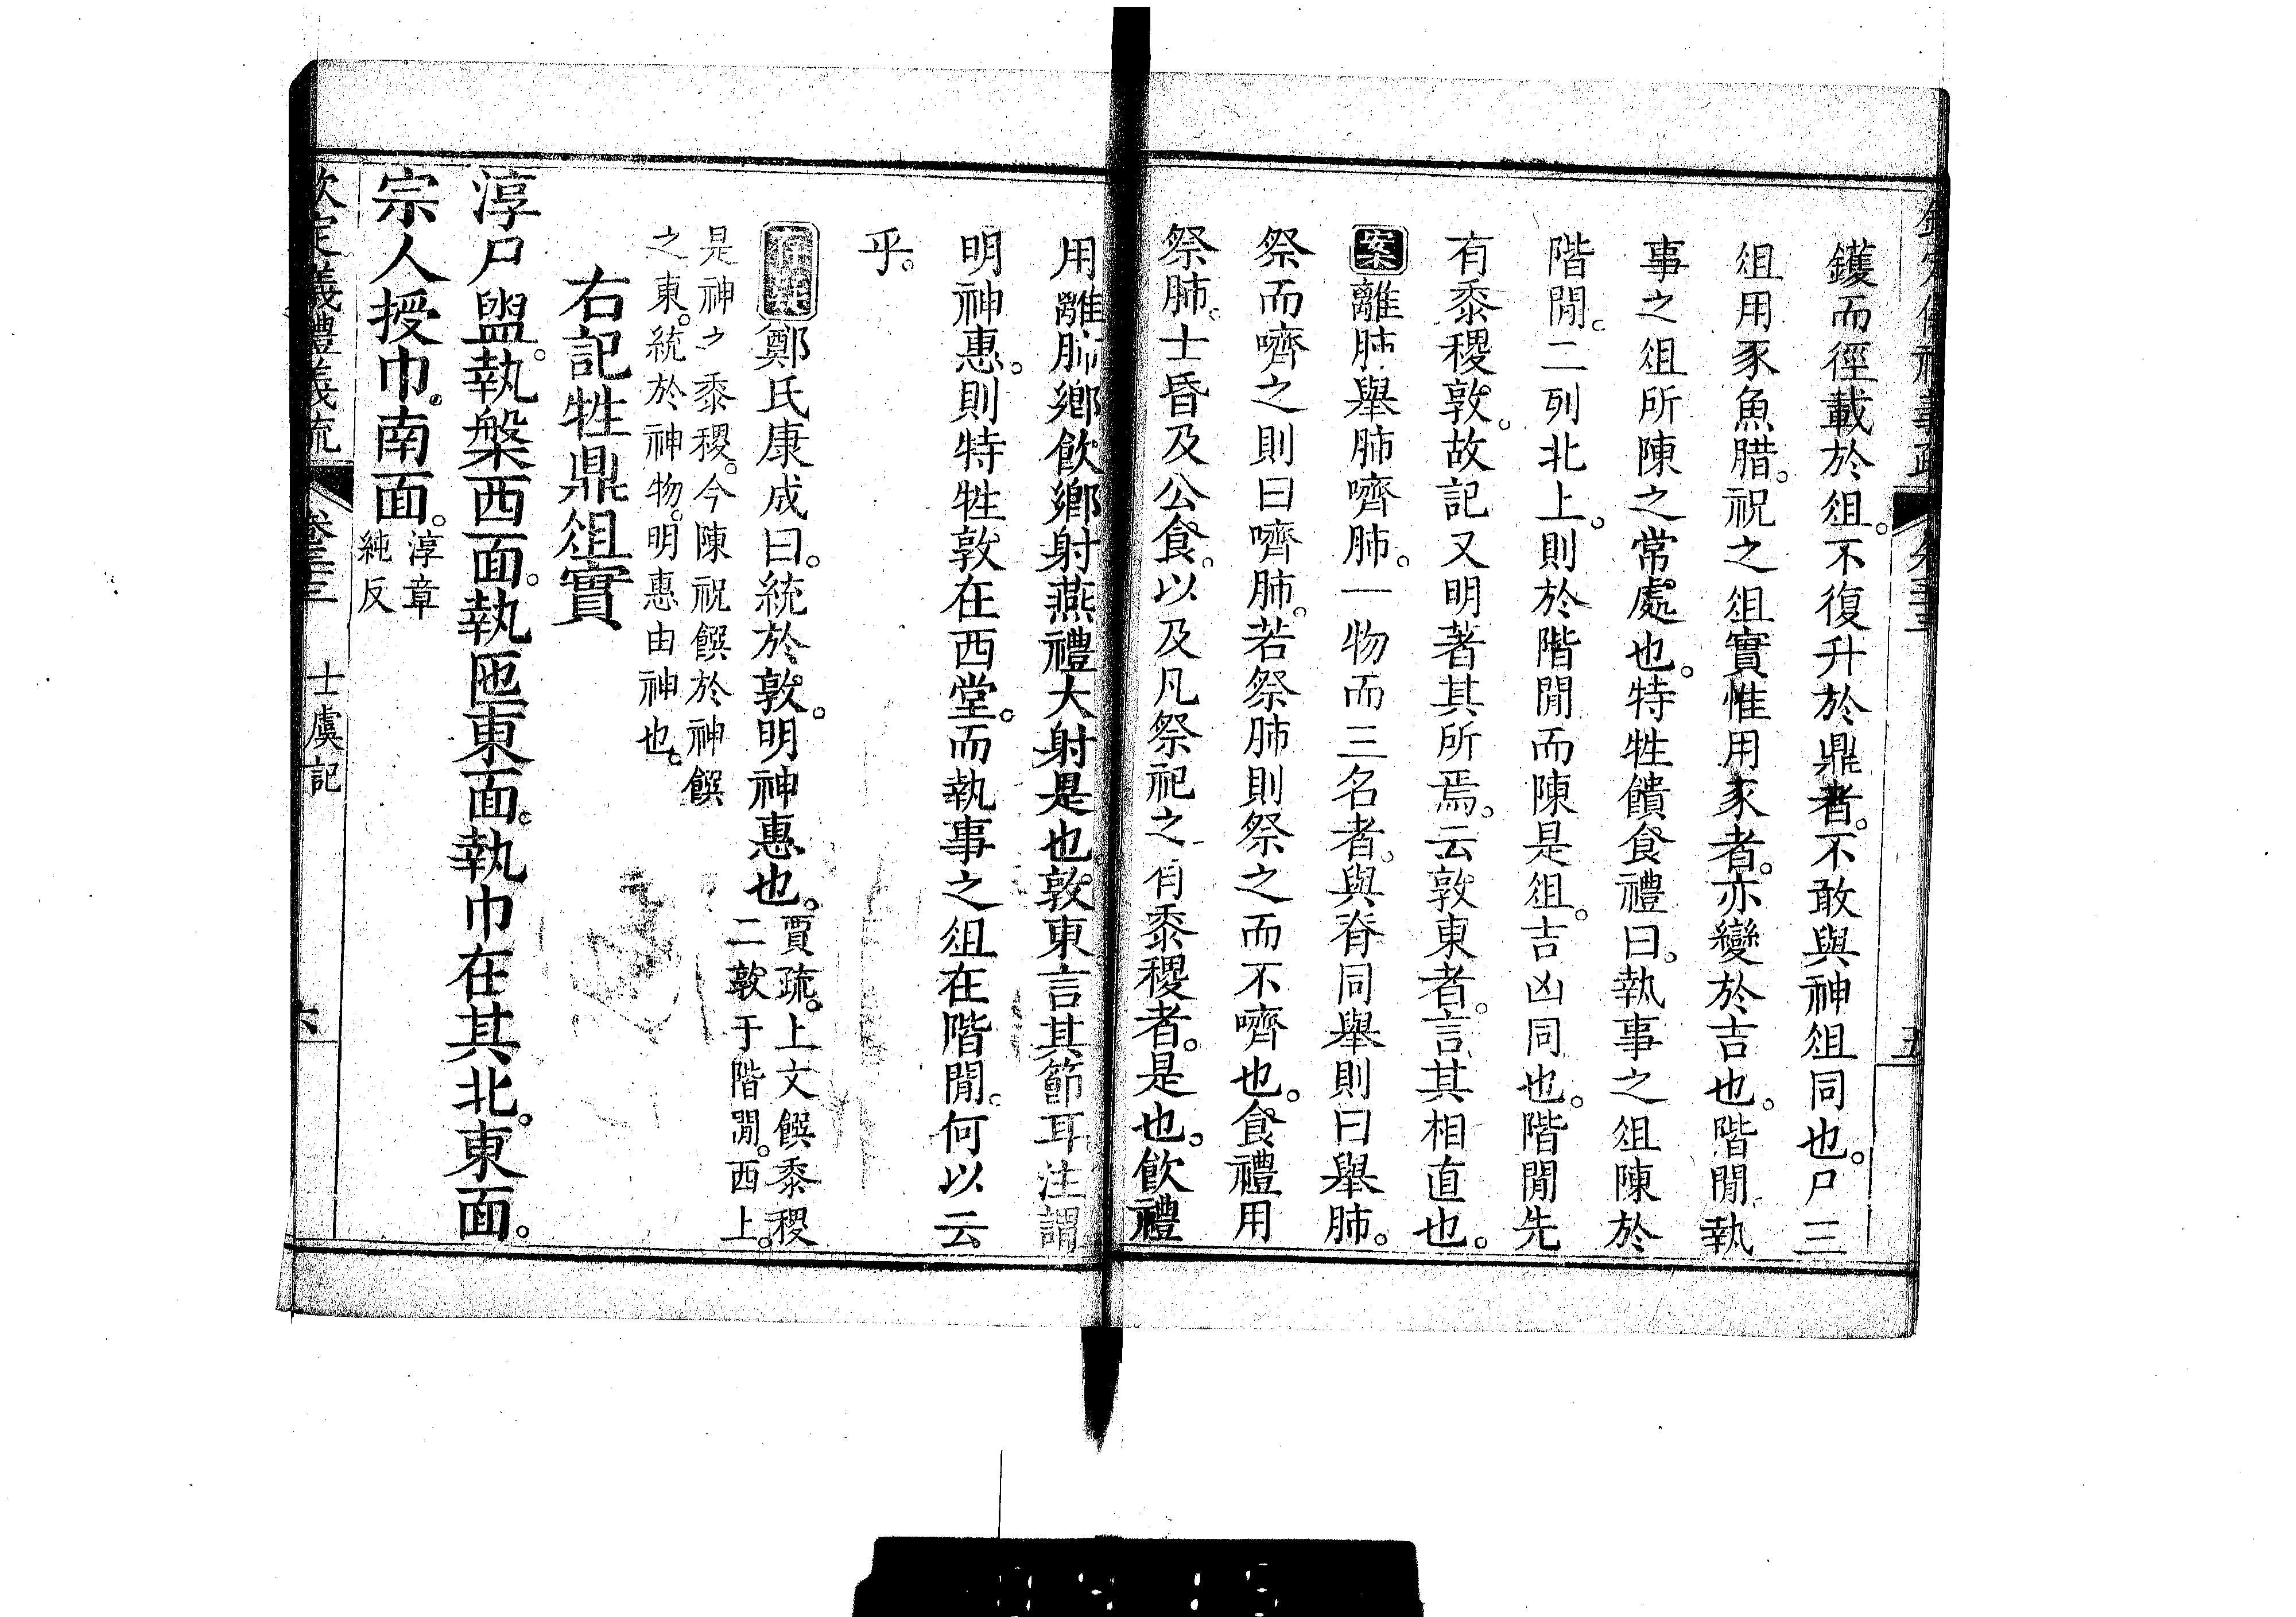 鑊而徑載於俎。不復升於鼎者。不敢與神俎同也。尸三
俎用豕魚腊。祝之俎實惟用豕者。亦變於吉也。階閒執
事之俎所陳之常處也。特牲饋食禮曰。執事之俎陳於
階閒。二列北上。則於階閒而陳是俎。吉凶同也。階閒先
有黍稷敦。故記又明著其所焉。云敦東者。言其相直也。
案離肺舉肺嚌肺。一物而三名者。與脊同舉則曰舉肺。
祭而嚌之則曰嚌肺。若祭肺則祭之而不嚌也。食禮用
祭肺。士昏及公食。以及凡祭祀之有黍稷者。是也。飲禮
用離肺鄉飲鄉射燕禮大射是也。敦東言其節耳。注謂
明神惠。則特牲敦在西堂。而執事之俎在階閒。何以云
乎。
鄭氏康成曰。統於敦。明神惠也。賈疏。上文饌黍稷
二敦于階閒。西上。
是神之黍稷。今陳祝饌於神饌
之東。統於神物。明惠由神也。
右記牲鼎俎實
淳尸盥。執槃西面。執匜東面。執巾在其北。東面。
宗人授巾。南面。淳章
純反
欽定儀禮義疏 卷三三 士虞記 六